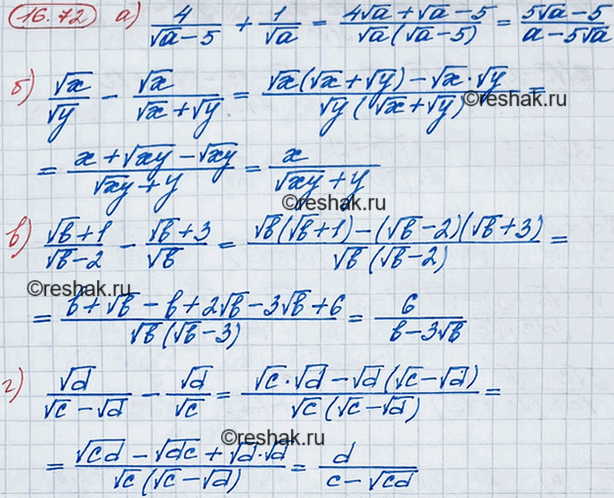 16.72 а) 4/(√a-5) + 1/√a = (4√a+√a-5)/(√a(√a-5)) = (5√a-5)/(a-5√a)
б) √x/√y - √x/(√x+√y) = (√x(√x+√y)-√x·√y)/(√y(√x+√y)) =
©reshak.ru
= (x+√xy-√xy)/(√xy+y) = x/(√xy+y)
©reshak.ru
в) (√b+1)/(√b-2) - (√b+3)/√b = (√b(√b+1)-(√b-2)(√b+3))/(√b(√b-2)) =
©reshak.ru
= (b+√b-b+2√b-3√b+6)/(√b(√b-3)) = 6/(b-3√b)
г) √d/(√c-√d) - √d/√c = (√c·√d-√d(√c-√d))/(√c(√c-√d)) =
©reshak.ru
= (√cd-√dc+√d·√d)/(√c(√c-√d)) = d/(c-√cd)